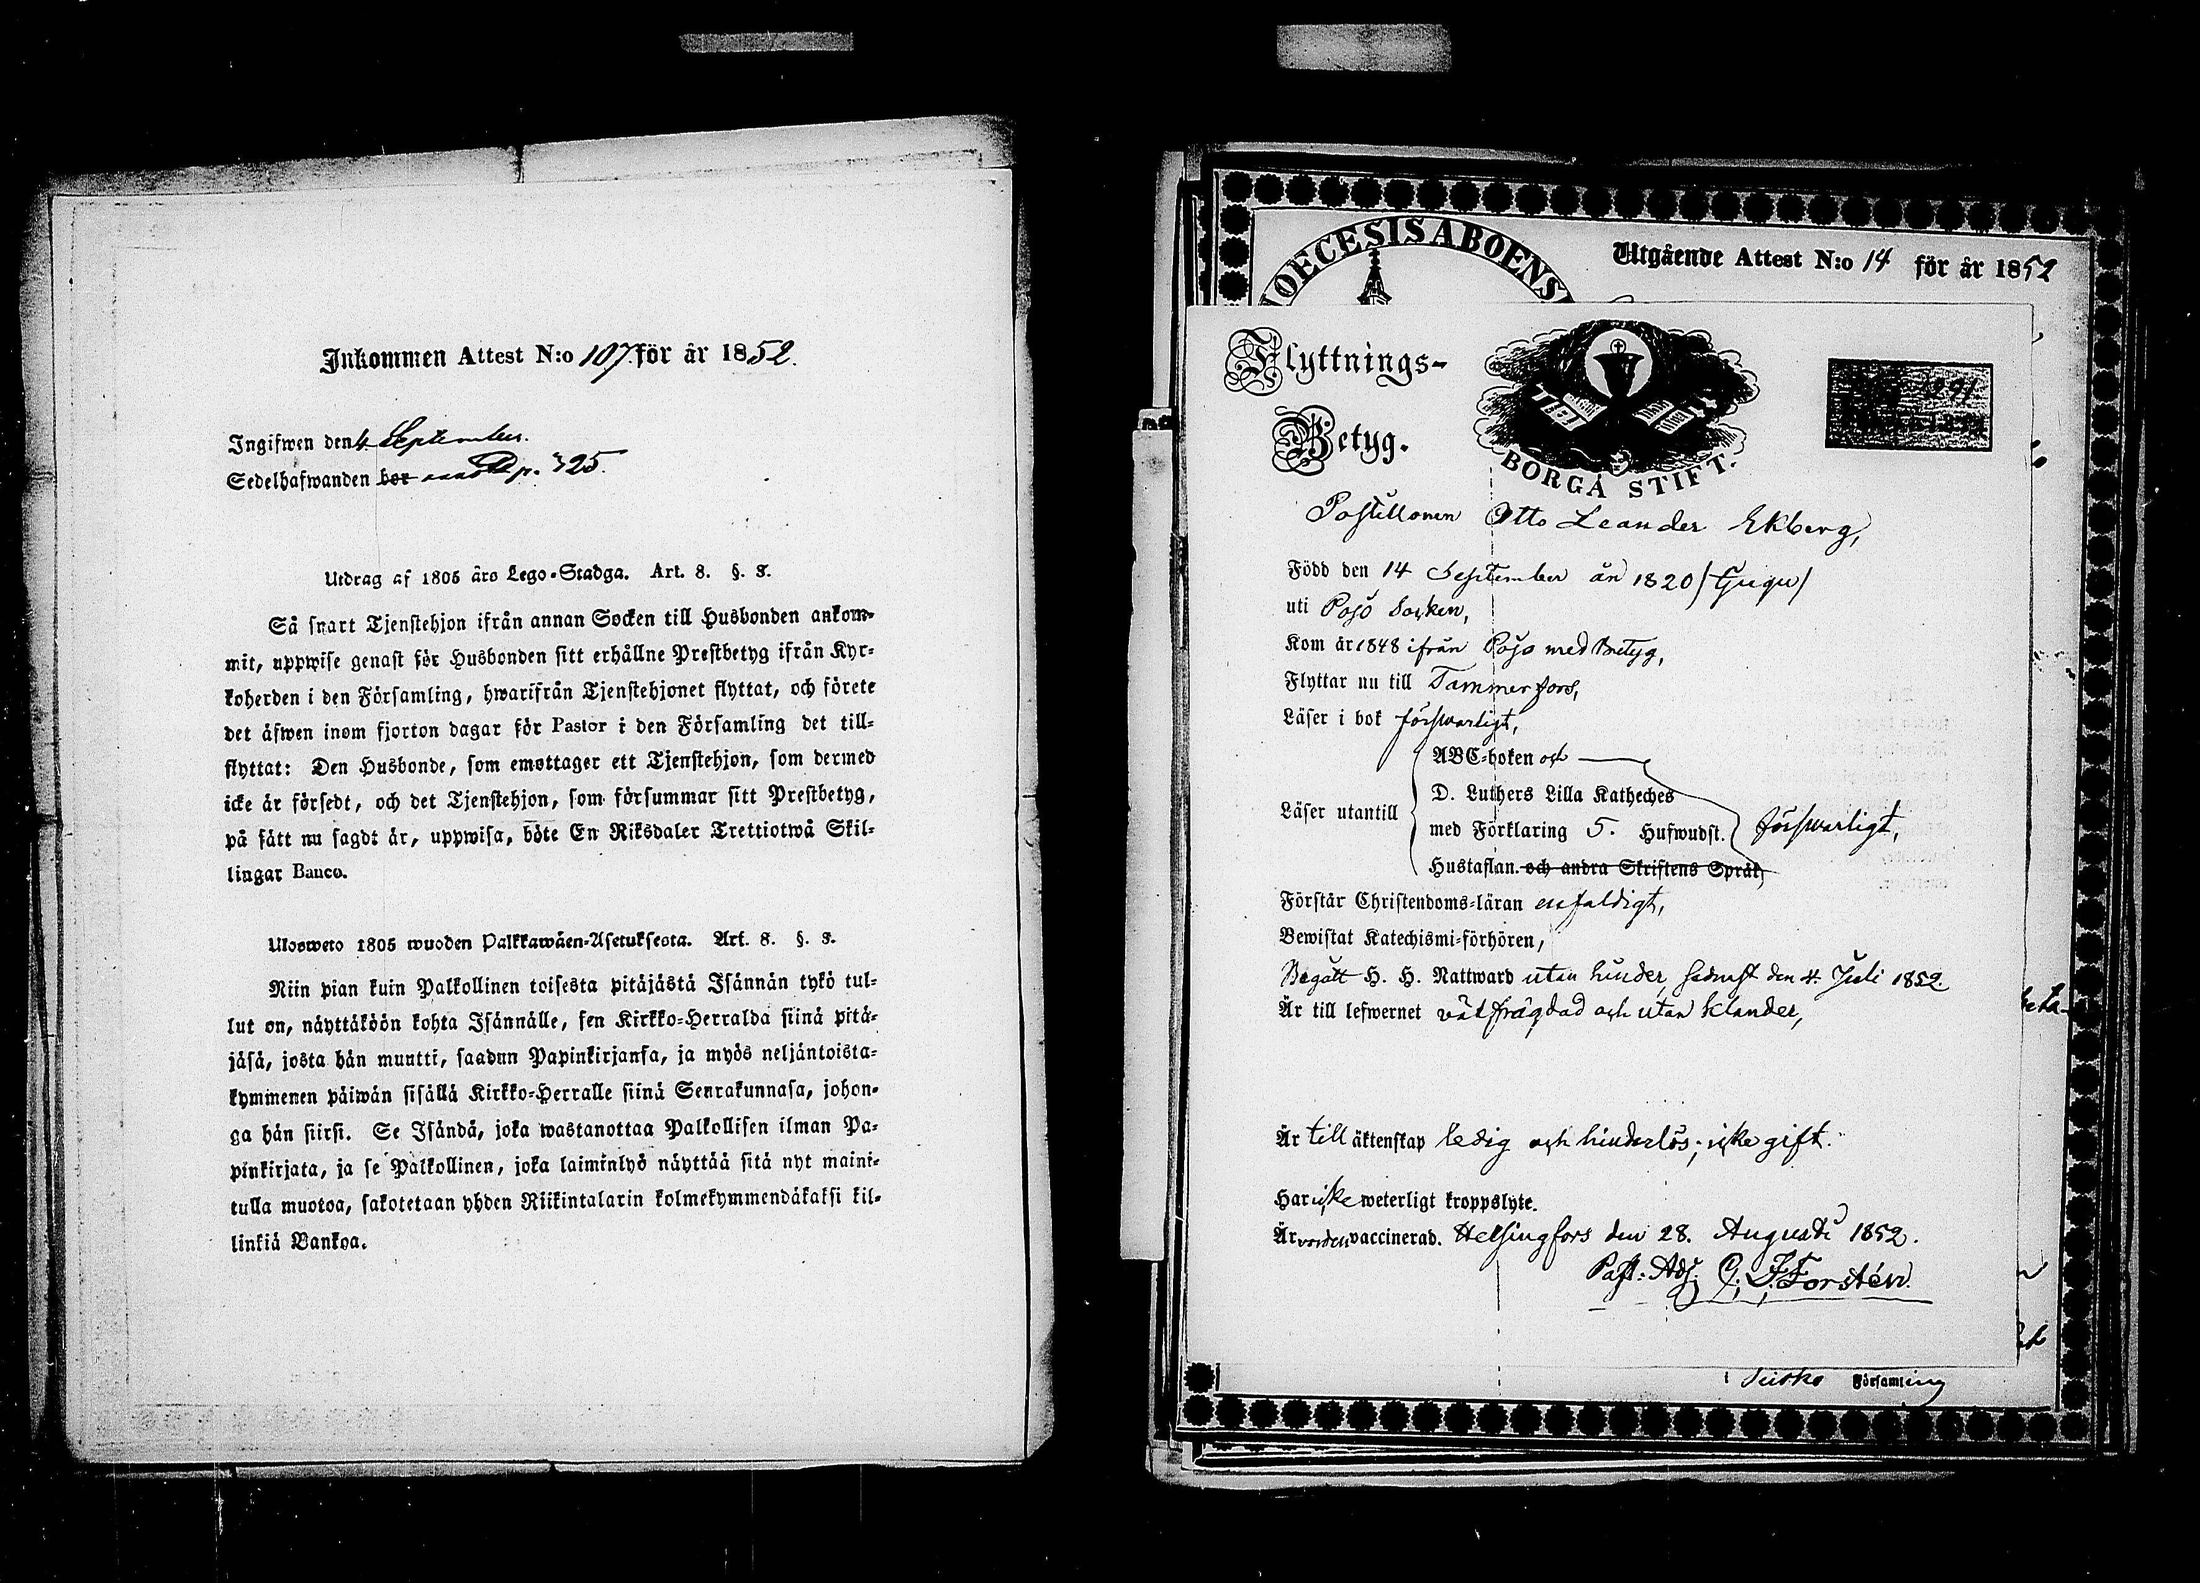 Inkommen Attest N:o 107. för år 1852.
Ingifwen den 4 September.
Sedelhafwanden bor p. 325.
Utdrag af 1805 års Lego-Stadga. Art. 8. §. 3.
Så snart Tjenstehjon ifrån annan Socken till Husbonden ankom-
mit, uppwise genast för Husbonden sitt erhållne Prestbetyg ifrån Kyr-
koherden i den Församling, hwarifrån Tjenstehjonet flyttat, och förete
det äfwen inom fjorton dagar för Pastor i den Församling det till-
flyttat: Den Husbonde, som emottager ett Tjenstehjon, som dermed
icke är försedt, och det Tjenstehjon, som försummar sitt Prestbetyg,
på sätt nu sagdt är, uppwisa, böte En Riksdaler Trettiotwå Skil-
lingar Banco.
Ulosweto 1805 wuoden Palkkawäen-Asetuksesta. Art. 8. §. 3.
Niin pian kuin Palkollinen toisesta pitäjästä Isännän tykö tul-
lut on, näyttäköön kohta Isännälle, sen Kirkko-Herralda siinä pitä-
jäsä, josta hän muutti, saadun Papinkirjansa, ja myös neljäntoista-
kymmenen päiwän sisällä Kirkko-Herralle siinä Seurakunnasa, johon-
ga hän siirsi. Se Isändä, joka wastanottaa Palkollisen ilman Pa-
pinkirjata, ja se Palkollinen, joka laiminlyö näyttää sitä nyt maini-
tulla muotoa, sakotetaan yhden Riikintalarin kolmekymmendäkaksi kil-
linkiä Bankoa.
DIOECESIS ABOENS
Utgående Attest N:o 14 för år 1852
Flyttnings-
Betyg.
BORGÅ STIFT.
Postillonen Otto Leander Ekberg,
Född den 14 September år 1820 /tjugu/
uti Pojo Socken,
Kom år 1848 ifrån Pojo med Betyg,
Flyttar nu till Tammerfors,
Läser i bok förswarligt,
ABC-boken och
D. Luthers Lilla Katheches
Läser utantill med Förklaring 5. Hufwudst. förswarligt,
Hustaflan och andra Skriftens Språk,
Förstår Christendoms-läran enfaldigt,
Bewistat Katechismi-förhören,
Begått H. H. Nattward utan hinder, sednast den 4. Juli 1852.
Är till lefwernet välfrägdad och utan klander,
Är till äktenskap ledig och hinderlös; icke gift.
Har icke weterligt kroppslyte.
Är worden vaccinerad. Helsingfors den 28. Augusti 1852.
Past: Adj. Forstén.
i Församling